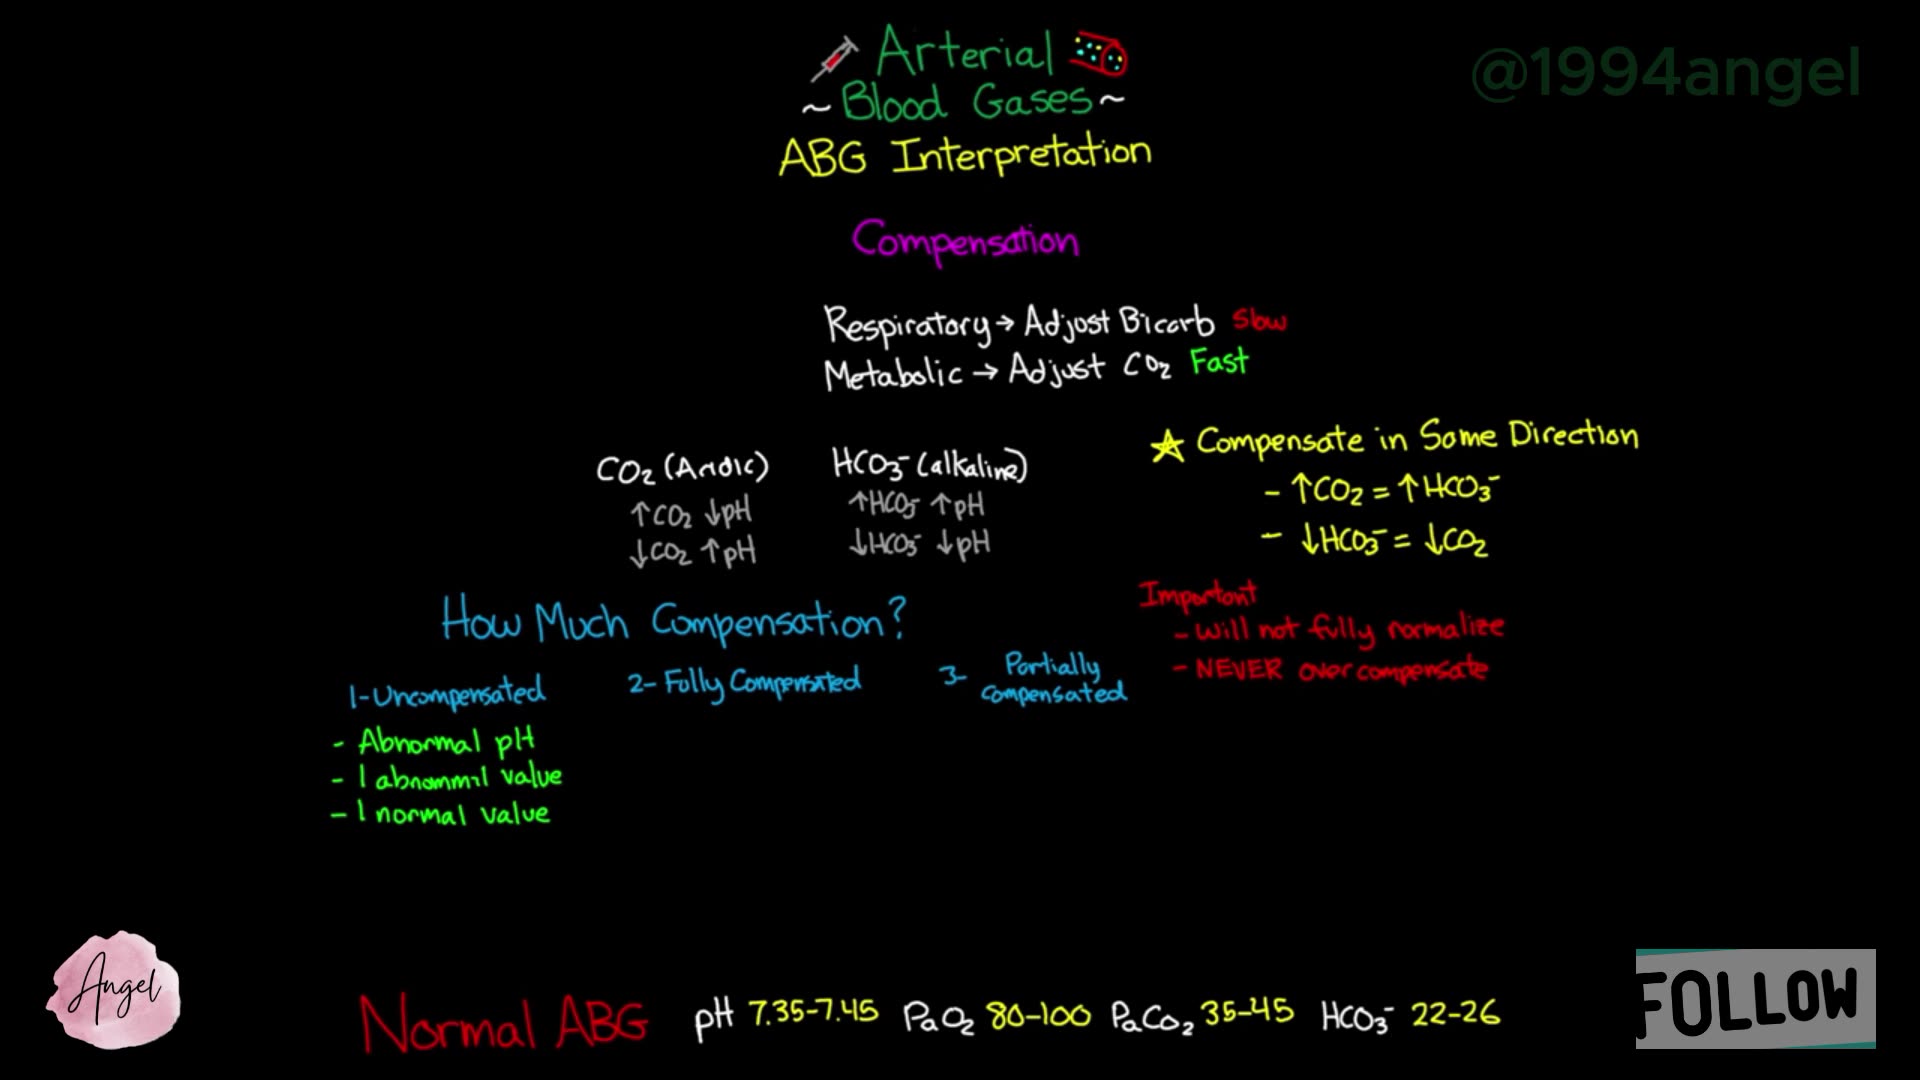 @1994angel
Arterial
~ Blood Gases ~
ABG Interpretation
Compensation
Respiratory → Adjust Bicarb Slow
Metabolic → Adjust CO₂ Fast
CO₂ (Acidic)
↑CO₂ ↓pH
↓CO₂ ↑pH
HCO₃⁻ (alkaline)
↑HCO₃⁻ ↑pH
↓HCO₃⁻ ↓pH
☆ Compensate in Same Direction
- ↑CO₂ = ↑HCO₃⁻
- ↓HCO₃⁻ = ↓CO₂
Important
- Will not fully normalize
- NEVER over compensate
How Much Compensation?
1- Uncompensated
- Abnormal pH
- 1 abnormal value
- 1 normal value
2- Fully Compensated
3- Partially
compensated
Angel
Normal ABG pH 7.35-7.45 PaO₂ 80-100 PaCO₂ 35-45 HCO₃⁻ 22-26
FOLLOW